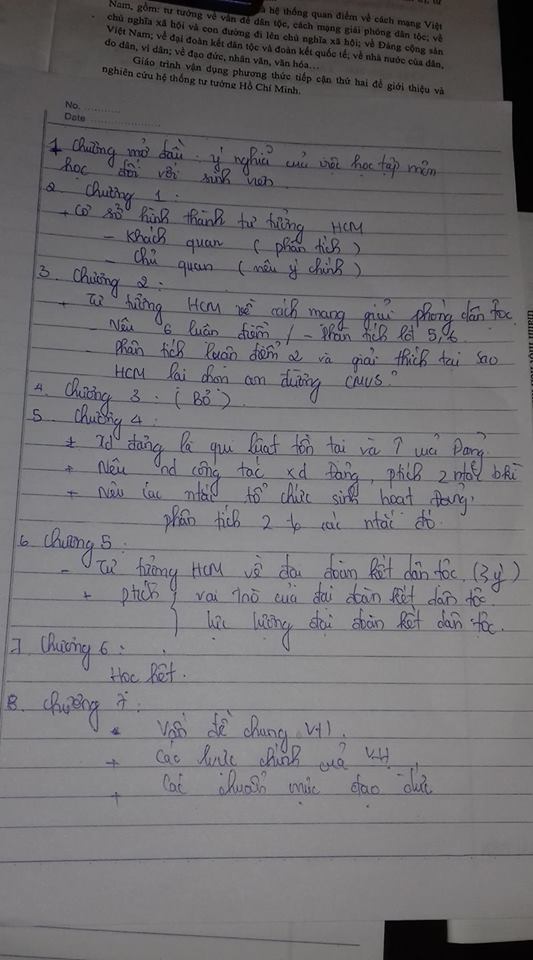 hệ thống quan điểm về cách mạng Việt
Nam, gồm: tư tưởng về vấn đề dân tộc, cách mạng giải phóng dân tộc; về
chủ nghĩa xã hội và con đường đi lên chủ nghĩa xã hội; về Đảng cộng sản
Việt Nam; về đại đoàn kết dân tộc và đoàn kết quốc tế; về nhà nước của dân,
do dân, vì dân; về đạo đức, nhân văn, văn hóa...
Giáo trình vận dụng phương thức tiếp cận thứ hai để giới thiệu và
nghiên cứu hệ thống tư tưởng Hồ Chí Minh.
No. ..........
Date ....................
1 Chương mở đầu : ý nghĩa của việc học tập môn
học đối với sinh viên
2 Chương 1 :
+ Cơ sở hình thành tư tưởng HCM
- Khách quan ( phân tích )
- Chủ quan ( nêu ý chính )
3. Chương 2 :
+ Tư tưởng HCM về cách mạng giải phóng dân tộc.
- Nêu 6 luận điểm / - phân tích lđ 5,6
phân tích luận điểm 2 và giải thích tại sao
HCM lại chọn con đường CMVS?
4. Chương 3 : ( Bỏ ).
5 Chương 4 :
+ Xd đảng là qui luật tồn tại và ↑ của Đảng.
+ Nêu nd công tác xd Đảng, ptích 2 ntắc
+ Nêu các ntắc tổ chức sinh hoạt đảng.
phân tích 2 các ntắc đó.
6 Chương 5 :
- Tư tưởng HCM về đại đoàn kết dân tộc. (3 ý)
+ ptích { vai trò của đại đoàn kết dân tộc.
lực lượng đại đoàn kết dân tộc.
7 Chương 6 :
Học hết.
8. Chương 7 :
+ Vấn đề chung VH.
+ Các lvực chính của VH
+ Các chuẩn mực đạo đức